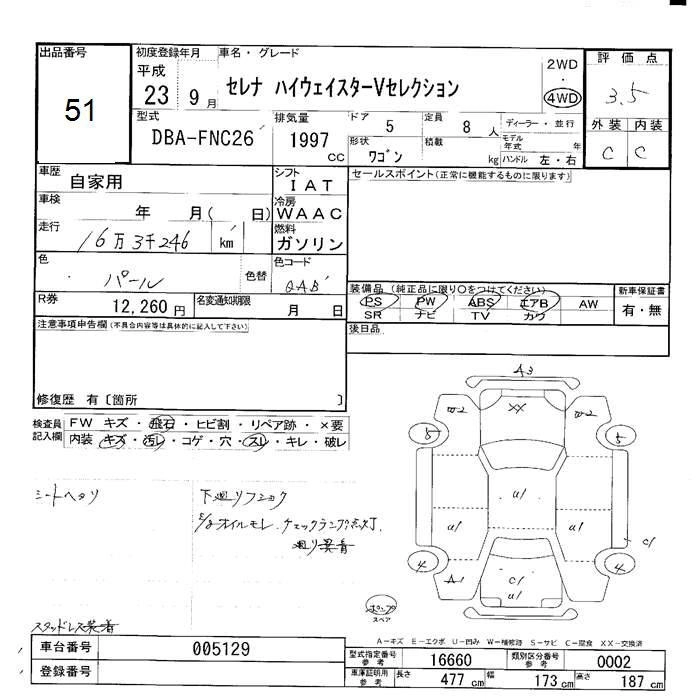 出品番号
51
初度登録年月
平成
23 9月
車名・グレード
セレナ ハイウェイスターVセレクション
2WD
・
4WD
評価点
3.5
外装 内装
C C
型式
DBA-FNC26
排気量
1997
cc
ドア
5
定員
8 人
ディーラー・並行
形状
ワゴン
積載
kg
モデル年式 年
ハンドル 左・右
車歴
自家用
シフト
IAT
車検
年 月( 日)
冷房
WAAC
走行
16万3千246 km
燃料
ガソリン
色
パール
色替
色コード
QAB
R券
12,260円
名変通知期限
月 日
セールスポイント(正常に機能するものに限ります)
装備品(純正品に限り○をつけてください)
PS PW ABS エアB AW
SR ナビ TV カワ
新車保証書
有・無
後日品
注意事項申告欄(不具合内容等は具体的に記入して下さい)
修復歴 有〔箇所 〕
検査員記入欄
FW キズ・飛石・ヒビ割・リペア跡・×要
内装 キズ・汚レ・コゲ・穴・スレ・キレ・破レ
シートヘタリ
下廻りフショク
オイルモレ.チェックランプ点灯
廻り異音
スタッドレス装着
A3
XX
W2 W2
5 5
U1
U1 U1
C1
4 4
A1
C1
U1
スペア
A-キズ E-エクボ U-凹み W-補修跡 S-サビ C-腐食 XX-交換済
車台番号
005129
登録番号
型式指定番号
参考
16660
類別区分番号
参考
0002
車庫証明用
参考
長さ
477 cm
幅
173 cm
高さ
187 cm